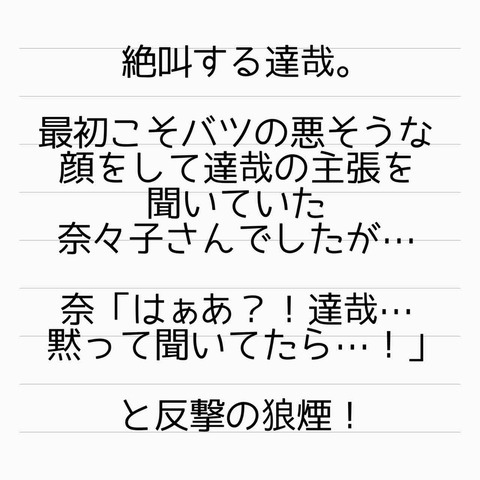 絶叫する達哉。
最初こそバツの悪そうな
顔をして達哉の主張を
聞いていた
奈々子さんでしたが…
奈「はぁあ？！達哉…
黙って聞いてたら…！」
と反撃の狼煙！